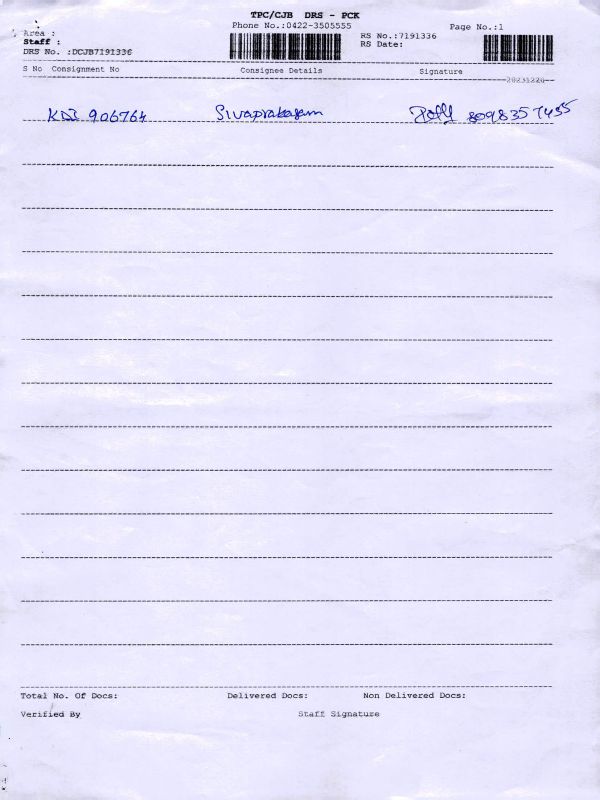 TPC/CJB DRS - PCK
Phone No.:0422-3505555
Page No.:1
Area :
Staff :
DRS No. :DCJB7191336
RS No.:7191336
RS Date:
S No Consignment No Consignee Details Signature
20231220
906764 Sivaprakasam 8098357455
Total No. Of Docs: Delivered Docs: Non Delivered Docs:
Verified By Staff Signature